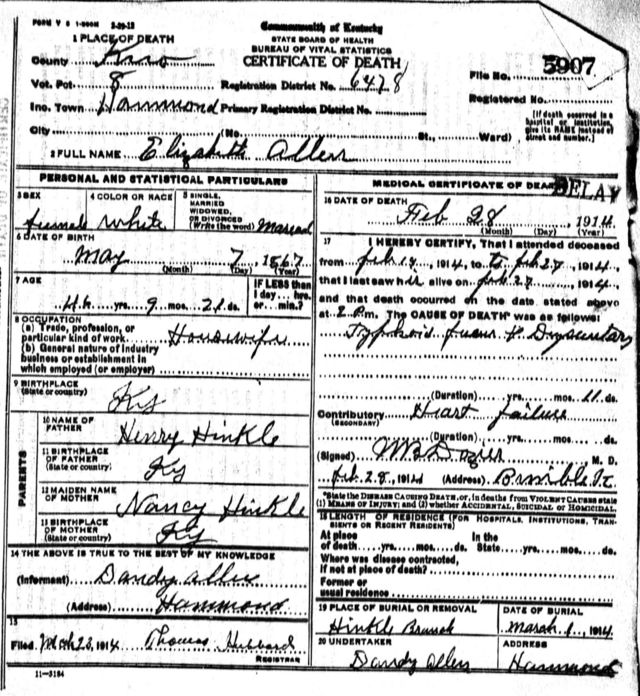 FORM V S 1-500M 2-29-12
Commonwealth of Kentucky
STATE BOARD OF HEALTH
BUREAU OF VITAL STATISTICS
CERTIFICATE OF DEATH
1 PLACE OF DEATH
County Knox
Vot. Pct. 8 Registration District No. 6478
Inc. Town Hammond Primary Registration District No.
File No. 5907
Registered No.
[If death occurred in a
hospital or institution,
give its NAME instead of
street and number.]
City (No. St., Ward)
2 FULL NAME Elizabeth Allen
PERSONAL AND STATISTICAL PARTICULARS
3 SEX female
4 COLOR OR RACE White
5 SINGLE, MARRIED WIDOWED, OR DIVORCED (Write the word) Married
6 DATE OF BIRTH
May 7, 1867
(Month) (Day) (Year)
7 AGE
46 yrs. 9 mos. 21 ds.
IF LESS than
1 day... hrs.
or... min.?
8 OCCUPATION
(a) Trade, profession, or
particular kind of work Housewife
(b) General nature of industry
business or establishment in
which employed (or employer)
9 BIRTHPLACE
(State or country) Ky
PARENTS
10 NAME OF FATHER Henry Hinkle
11 BIRTHPLACE OF FATHER (State or country) Ky
12 MAIDEN NAME OF MOTHER Nancy Hinkle
13 BIRTHPLACE OF MOTHER (State or country) Ky
14 THE ABOVE IS TRUE TO THE BEST OF MY KNOWLEDGE
(Informant) Dandy Allen
(Address) Hammond
15
Filed 23, 1914 Thomas Hubbard
REGISTRAR
11-3184
MEDICAL CERTIFICATE OF DEATH
DELAY
16 DATE OF DEATH
Feb 28, 1914
(Month) (Day) (Year)
17 I HEREBY CERTIFY, That I attended deceased
from Feb, 1914, to Feb 27, 1914,
that I last saw her alive on Feb 27, 1914
and that death occurred on the date stated above
at 2 P.m. The CAUSE OF DEATH* was as follows:
Typhoid Fever & Dysentary
(Duration) yrs. mos. 11 ds.
Contributory Heart failure
(SECONDARY)
(Duration) yrs. mos. ds.
(Signed) M. D.
Feb. 28, 1914 (Address)
*State the DISEASE CAUSING DEATH, or, in deaths from VIOLENT CAUSES state
(1) MEANS OF INJURY; and (2) whether ACCIDENTAL, SUICIDAL or HOMICIDAL.
18 LENGTH OF RESIDENCE (FOR HOSPITALS, INSTITUTIONS, TRANSIENTS OR RECENT RESIDENTS)
At place In the
of death yrs. mos. ds. State yrs. mos. ds.
Where was disease contracted,
if not at place of death?
Former or
usual residence
19 PLACE OF BURIAL OR REMOVAL
Hinkle Branch
DATE OF BURIAL
March 1, 1914
20 UNDERTAKER
Dandy Allen
ADDRESS
Hammond